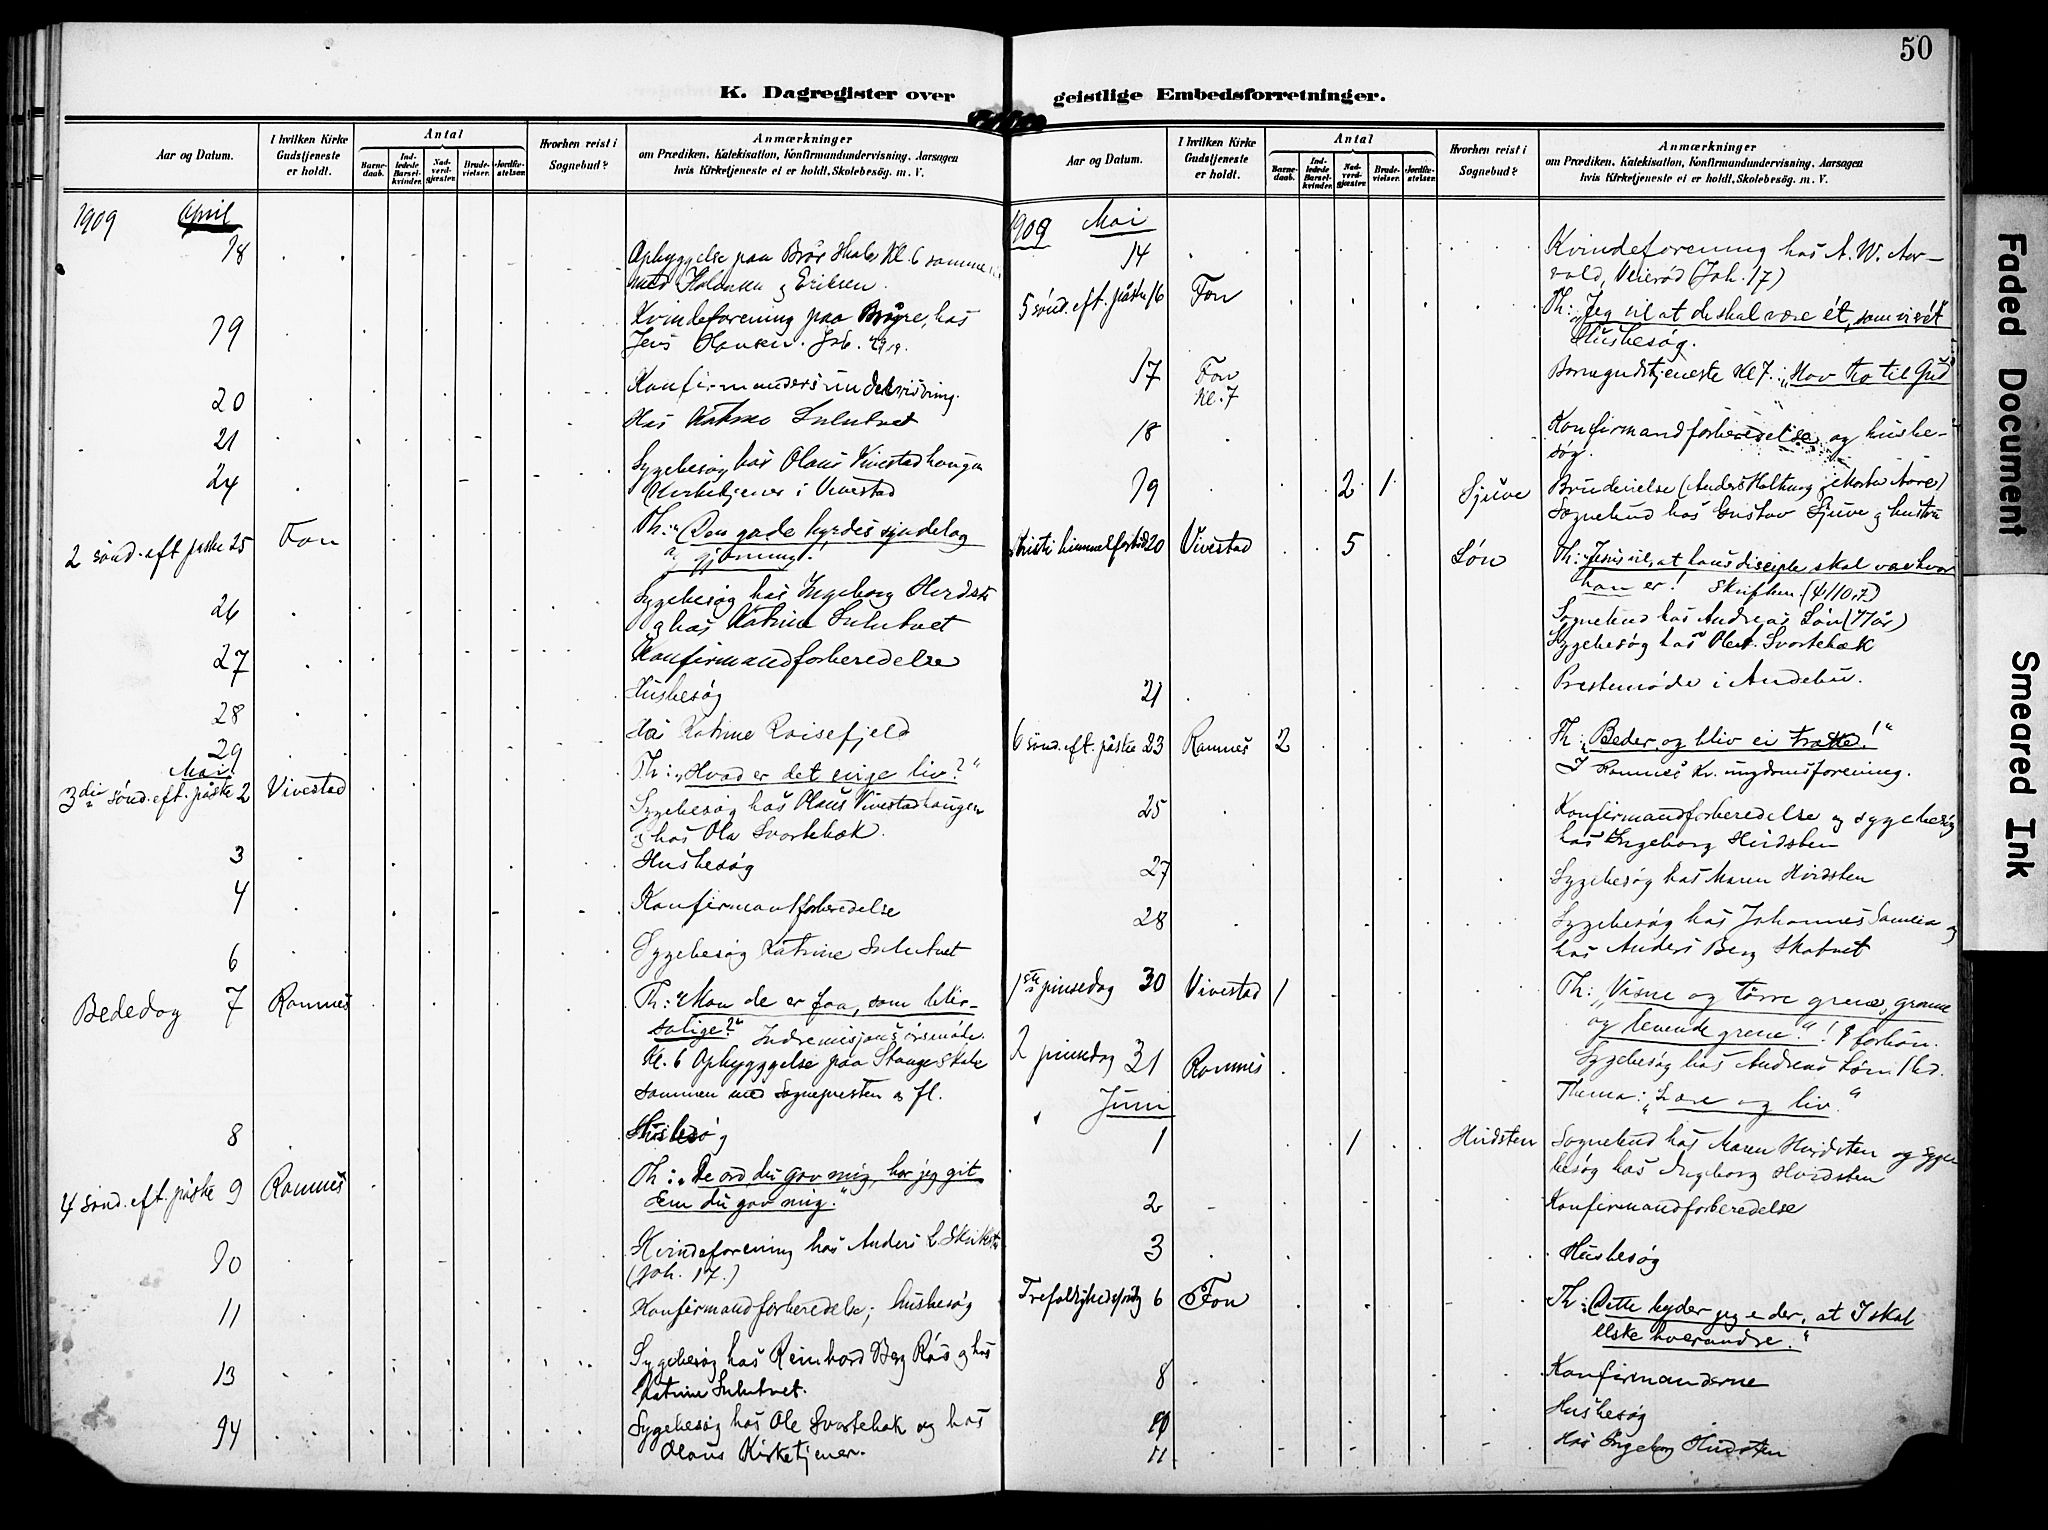 50
K. Dagregister over geistlige Embedsforretninger.
Aar og Datum.
I hvilken Kirke Gudstjeneste er holdt.
Antal
Barnedaab.
Indledede Barselkvinder.
Nadverdgjester.
Brudevielser.
Jordfæstelser.
Hvorhen reist i Sognebud?
Anmærkninger
om Prædiken, Katekisation, Konfirmandundervisning, Aarsagen
hvis Kirketjeneste ei er holdt, Skolebesøg. m. V.
1909 April
18 Opbyggelse paa Skole Kl. 6 sammen
med og Eriksen.
19 Kvindeforening paa hos
Jens Hansen.
20 Konfirmandersundervisning.
21 Hos Katrine Sulutvet
24 Sygebesøg hos Olaus Vivestadhaugen
Kirketjener i Vivestad
2 sønd. eft. påske 25 Fon Th: "Den gode hyrdes sjindelag
og gjerning!
26 Sygebesøg hos Ingeborg
og hos Katrine Sulutvet
27 Konfirmandforberedelse
28 Husbesøg
29 Hos Katrine Roisefjeld
Mai
3die sønd. eft. påske 2 Vivestad Th: "Hvad er det evige liv?"
Sygebesøg hos Olaus Vivestadhaugen
og hos Ole Svartebæk.
3 Husbesøg
4 Konfirmantforberedelse
6 Sygebesøg Katrine Sulutvet
Bededag 7 Ramnes Th: "Mon de er faa, som blir
salige?" Indremisjons årsmøte.
Kl. 6 Opbygggelse paa Stange Skole
sammen med Sognepresten o. fl.
8 Husbesøg
4 sønd. eft. påske 9 Ramnes Th: "De ord, du gav mig, har jeg git
dem du gav mig."
10 Kvindeforening hos Anders L.
(Joh. 17.)
11 Konfirmandforberedelse; husbesøg
13 Sygebesøg hos Reinhard Berg Rås og hos
Katrine Sulutvet.
14 Sygebesøg hos Ole Svartebæk og hos
Olaus Kirketjener.
Aar og Datum.
I hvilken Kirke Gudstjeneste er holdt.
Antal
Barnedaab.
Indledede Barselkvinder.
Nadverdgjester.
Brudevielser.
Jordfæstelser.
Hvorhen reist i Sognebud?
Anmærkninger
om Prædiken, Katekisation, Konfirmandundervisning, Aarsagen
hvis Kirketjeneste ei er holdt, Skolebesøg. m. V.
1909 Mai
14 Kvindeforening hos A. W. Aar-
vold, Veierød (Joh. 17)
5 sønd. eft. påske 16 Fon Th: "Jeg vil at de skal være ét, som vi er ét"
Husbesøg.
17 Fon Kl. 7 Barnegudstjeneste Kl 7. "Hav tro til Gud"
18 Konfirmandforberedelse og husbe-
søg.
19 2 1 Sjuve Brudevielse (Anders Haltung
Sognebud hos Gustav Sjuve og hustru
Kristi himmelfartsd 20 Vivestad 5 Løn Th: "Jesus vil, at hans disciple skal være hvor
han er! Skriften (ψ 110.7)
Sognebud hos Andreas Løn (77 år)
Sygebesøg hos Svartebæk
21 Prestemøde i Andebu.
6 sønd. eft. påske 23 Ramnes 2 Th: "Beder, og bliv ei trætte!"
I Ramnes Kr. ungdomsforening.
25 Konfirmandforberedelse og sygebesøg
hos Ingeborg Hvidsten
27 Sygebesøg hos Maren Hvidsten
28 Sygebesøg hos Johannes og
hos Anders Berg Skatvet
1ste pinsedag 30 Vivestad 1 Th: "Visne og tørre grene, grønne
og levende grene."!
Sygebesøg hos Andreas Løn
2 pinsedag 31 Ramnes Thema: "Lære og liv."
Juni
1 1 Hvidsten Sognebud hos Maren Hvidsten og syge-
besøg hos Ingeborg Hvidsten
2 Konfirmandforberedelse
3 Husbesøg
Trefoldighedssøndg 6 Fon Th: "Dette byder jeg eder, at I skal
elske hverandre."
8 Konfirmanderne
10 Husbesøg
11 Hos Ingeborg Hvidsten
Faded Document
Smeared Ink